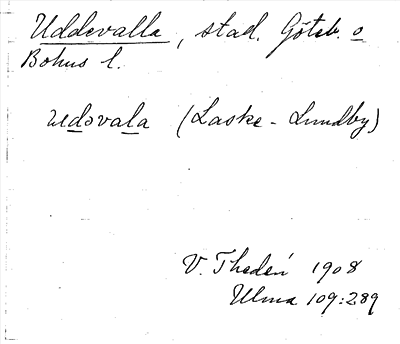 Uddevalla, stad. Göteb. o
Bohus l.
udəvala (Laske-Lundby)
V. Thedén 1908
Ulma 109:289